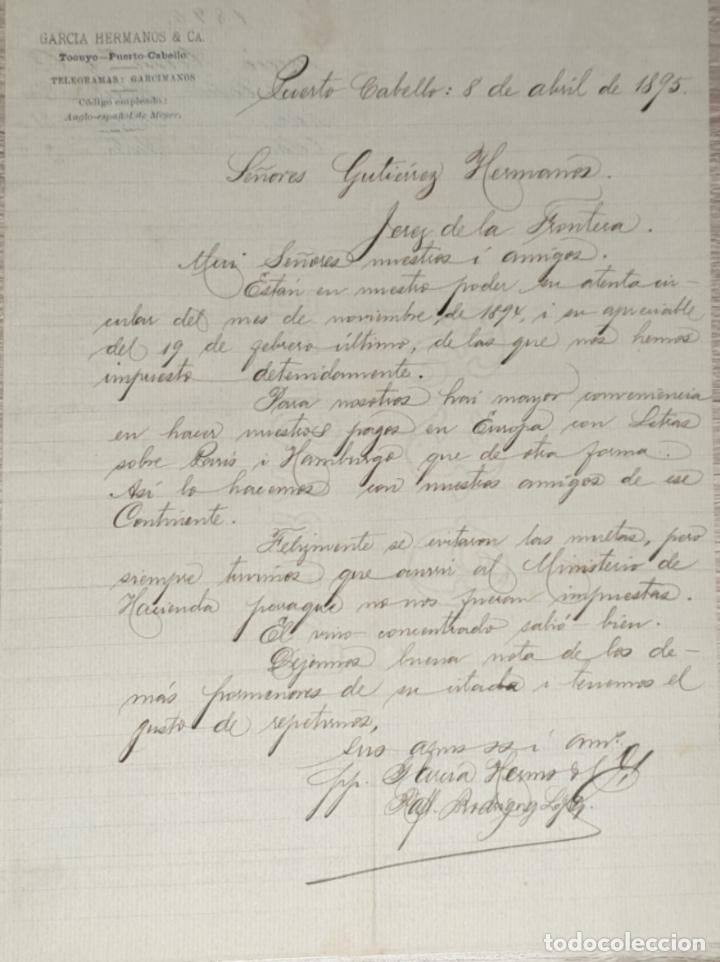 GARCIA HERMANOS & CA.
Tocuyo—Puerto-Cabello
TELEGRAMAS: GARCIMANOS
Código empleado:
Anglo-español de Meyer.
Puerto Cabello: 8 de abril de 1895.
Señores Gutiérrez Hermanos.
Jerez de la Frontera.
Mui Señores nuestros i amigos.
Están en nuestro poder su atenta cir-
cular del mes de noviembre de 1894, i su apreciable
del 19 de febrero último, de las que nos hemos
impuesto detenidamente.
Para nosotros hai mayor conveniencia
en hacer nuestros pagos en Europa con Letras
sobre Paris i Hamburgo que de otra forma.
Así lo hacemos con nuestros amigos de ese
Continente.
Felizmente se evitaron las multas, pero
siempre tuvimos que ocurrir al Ministerio de
Hacienda paraque no nos fueran impuestas.
El vino concentrado salió bien.
Dejamos buena nota de los de-
más pormenores de su citada i tenemos el
gusto de repetirnos,
sus ss i am.
pp. Garcia Hermos & Ca
Rafl. Rodriguez López.
todocoleccion.net